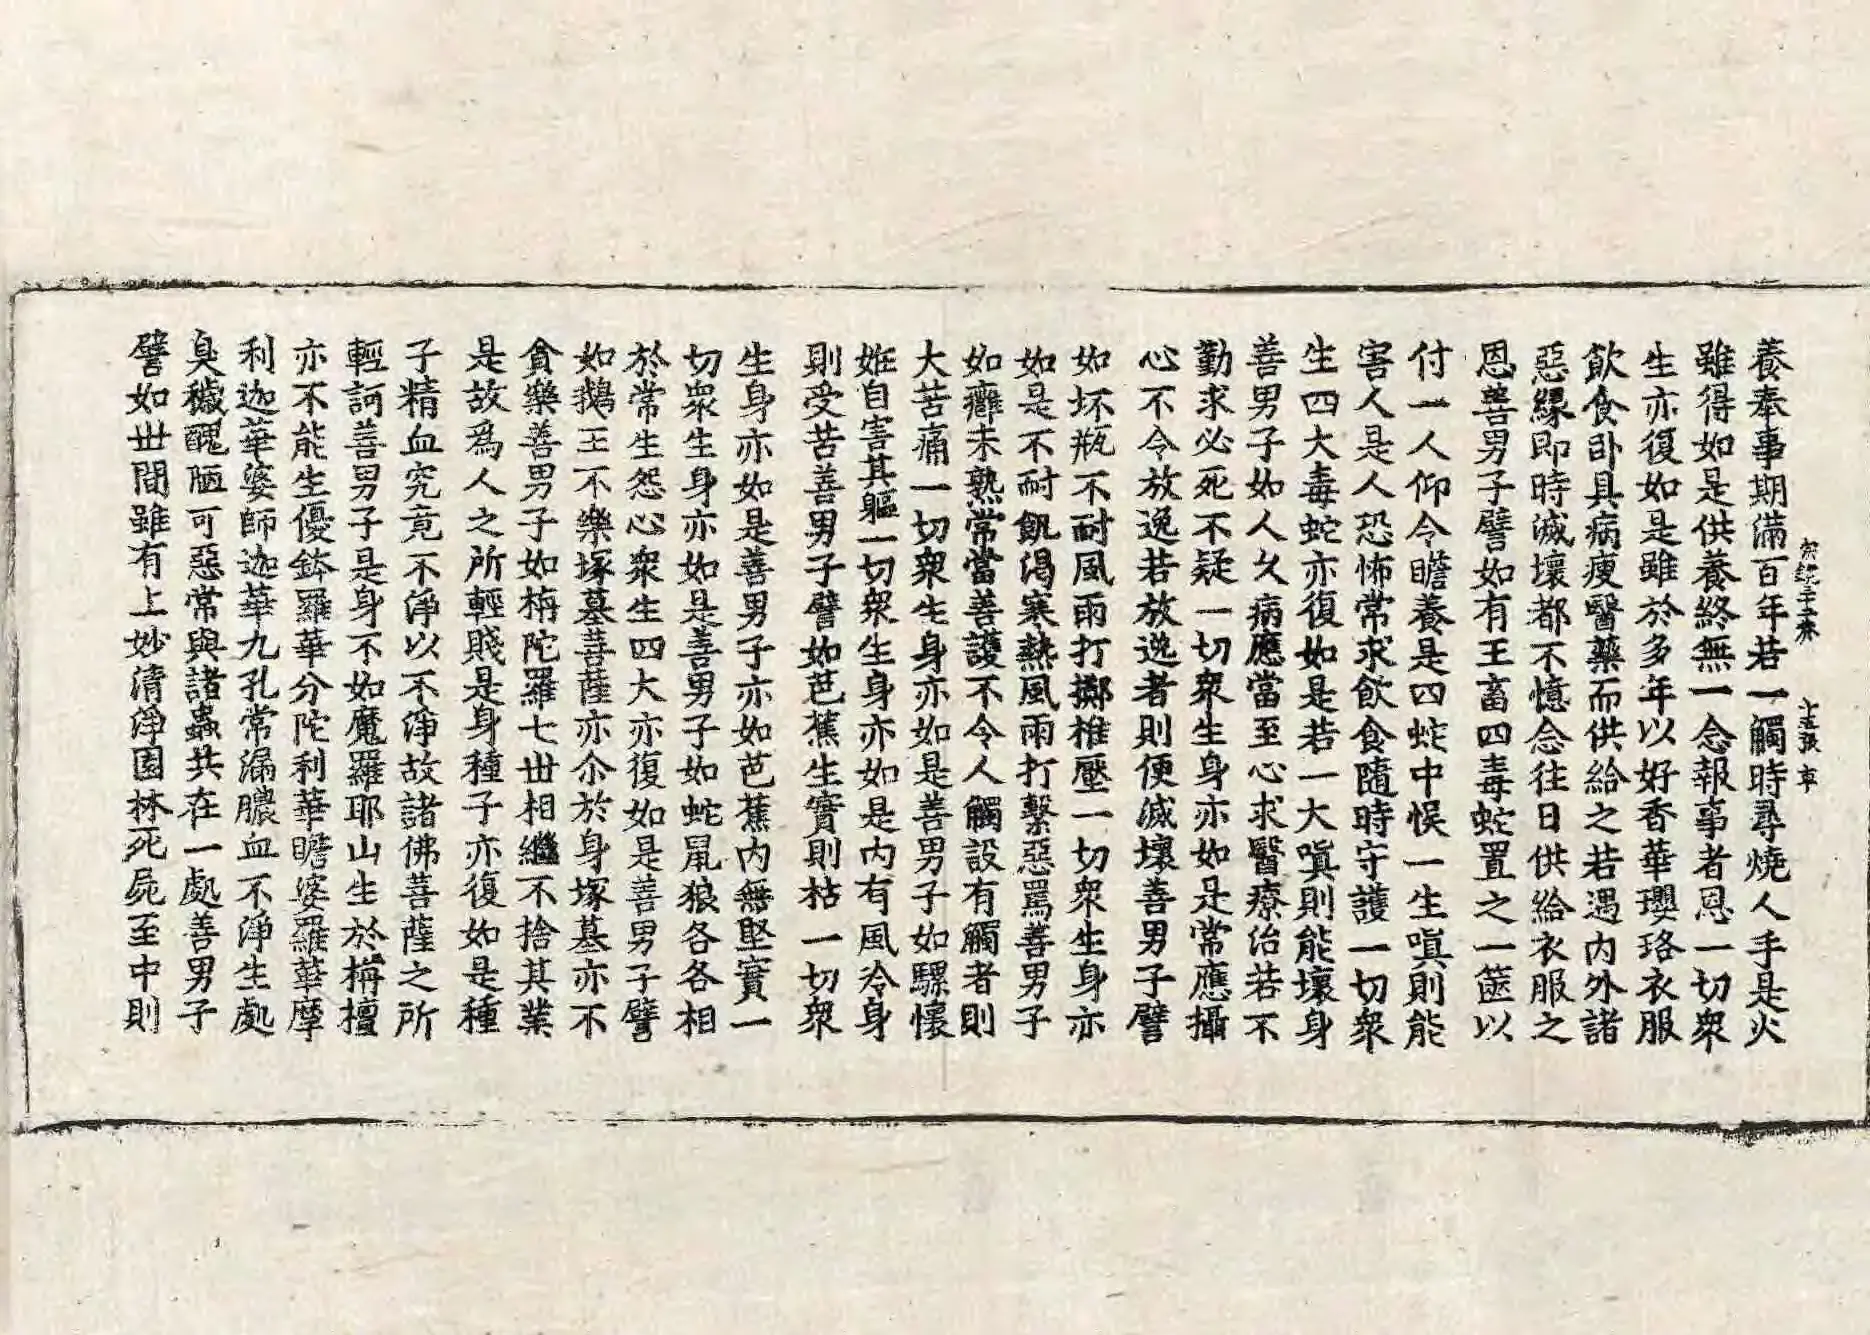 養奉事期滿百年若一觸時尋燒人手是火
雖得如是供養終無一念報事者恩一切衆
生亦復如是雖於多年以好香華瓔珞衣服
飲食卧具病瘦醫藥而供給之若遇内外諸
惡緣即時滅壞都不憶念往日供給衣服之
恩善男子譬如有王畜四毒蛇置之一篋以
付一人仰令瞻養是四蛇中悮一生嗔則能
害人是人恐怖常求飲食隨時守護一切衆
生四大毒蛇亦復如是若一大嗔則能壞身
善男子如人久病應當至心求醫療治若不
勤求必死不疑一切衆生身亦如是常應攝
心不令放逸若放逸者則便滅壞善男子譬
如坏瓶不耐風雨打擲椎壓一切衆生身亦
如是不耐飢渴寒熱風雨打繫惡罵善男子
如癰未熟常當善護不令人觸設有觸者則
大苦痛一切衆生身亦如是善男子如騾懷
妊自害其軀一切衆生身亦如是内有風冷身
則受苦善男子譬如芭蕉生實則枯一切衆
生身亦如是善男子亦如芭蕉内無堅實一
切衆生身亦如是善男子如蛇鼠狼各各相
於常生怨心衆生四大亦復如是善男子譬
如鵝王不樂塚墓菩薩亦尒於身塚墓亦不
貪樂善男子如栴陀羅七世相繼不捨其業
是故爲人之所輕賤是身種子亦復如是種
子精血究竟不淨以不淨故諸佛菩薩之所
輕訶善男子是身不如魔羅耶山生於栴檀
亦不能生優鉢羅華分陀利華瞻婆羅華摩
利迦華婆師迦華九孔常漏膿血不淨生處
臭穢醜陋可惡常與諸蟲共在一處善男子
譬如世間雖有上妙清淨園林死屍至中則